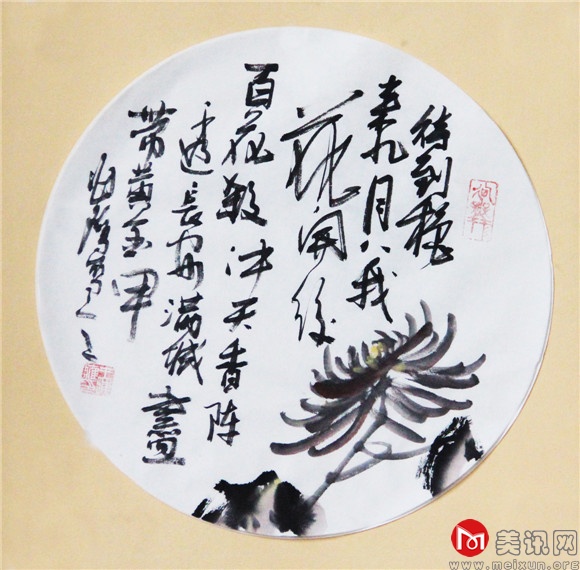 待到秋
来九月八我
花開後
百花殺冲天香阵
透長安满城盡
带黄金甲
美讯网
www.meixun.org